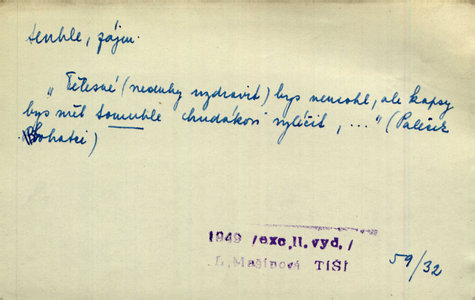 tenhle, zájm.
„Tělesné (neduhy uzdravit) bys nemohl, ale kapsy
bys měl tomuhle chuďákovi vyléčit, ..." (Paleček
Bohatci)
1949 /exc.II.vyd./
Mašínová TIŠÍ
59/32